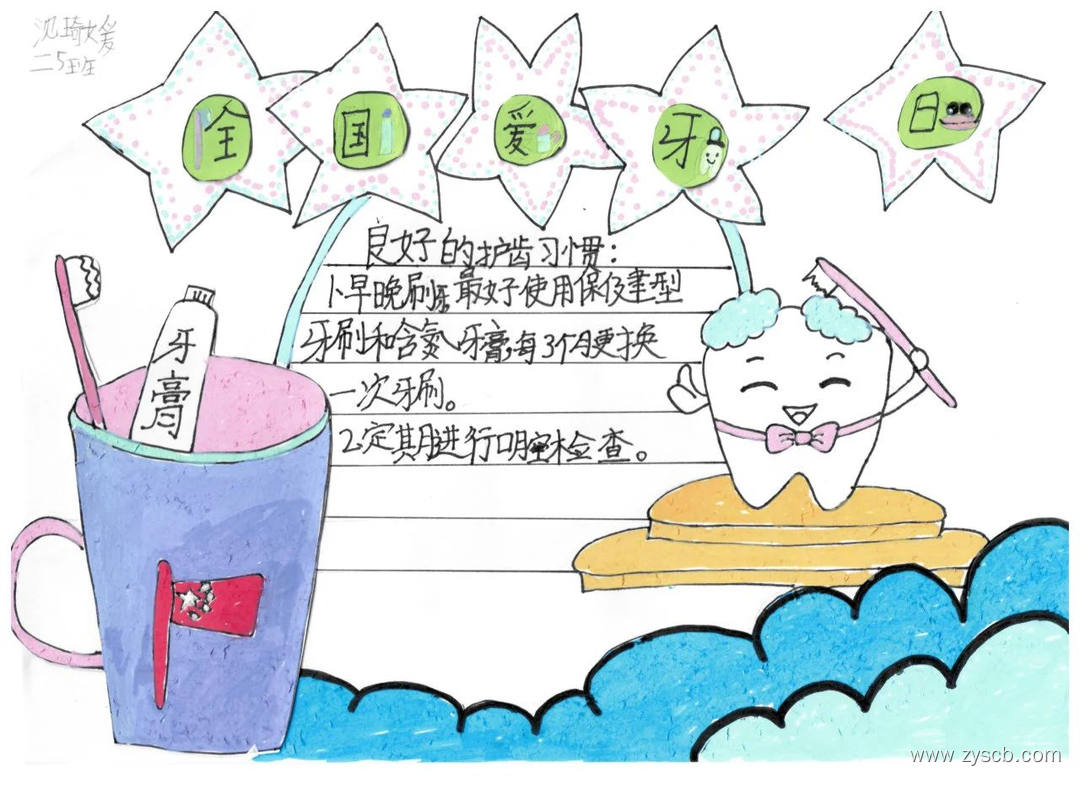 沈琦媛
二5班
全国爱牙日
良好的护齿习惯：
1、早晚刷牙,最好使用保健型
牙刷和含氟牙膏,每3个月更换
一次牙刷。
2.定期进行口腔检查。
牙膏
www.zyscb.com